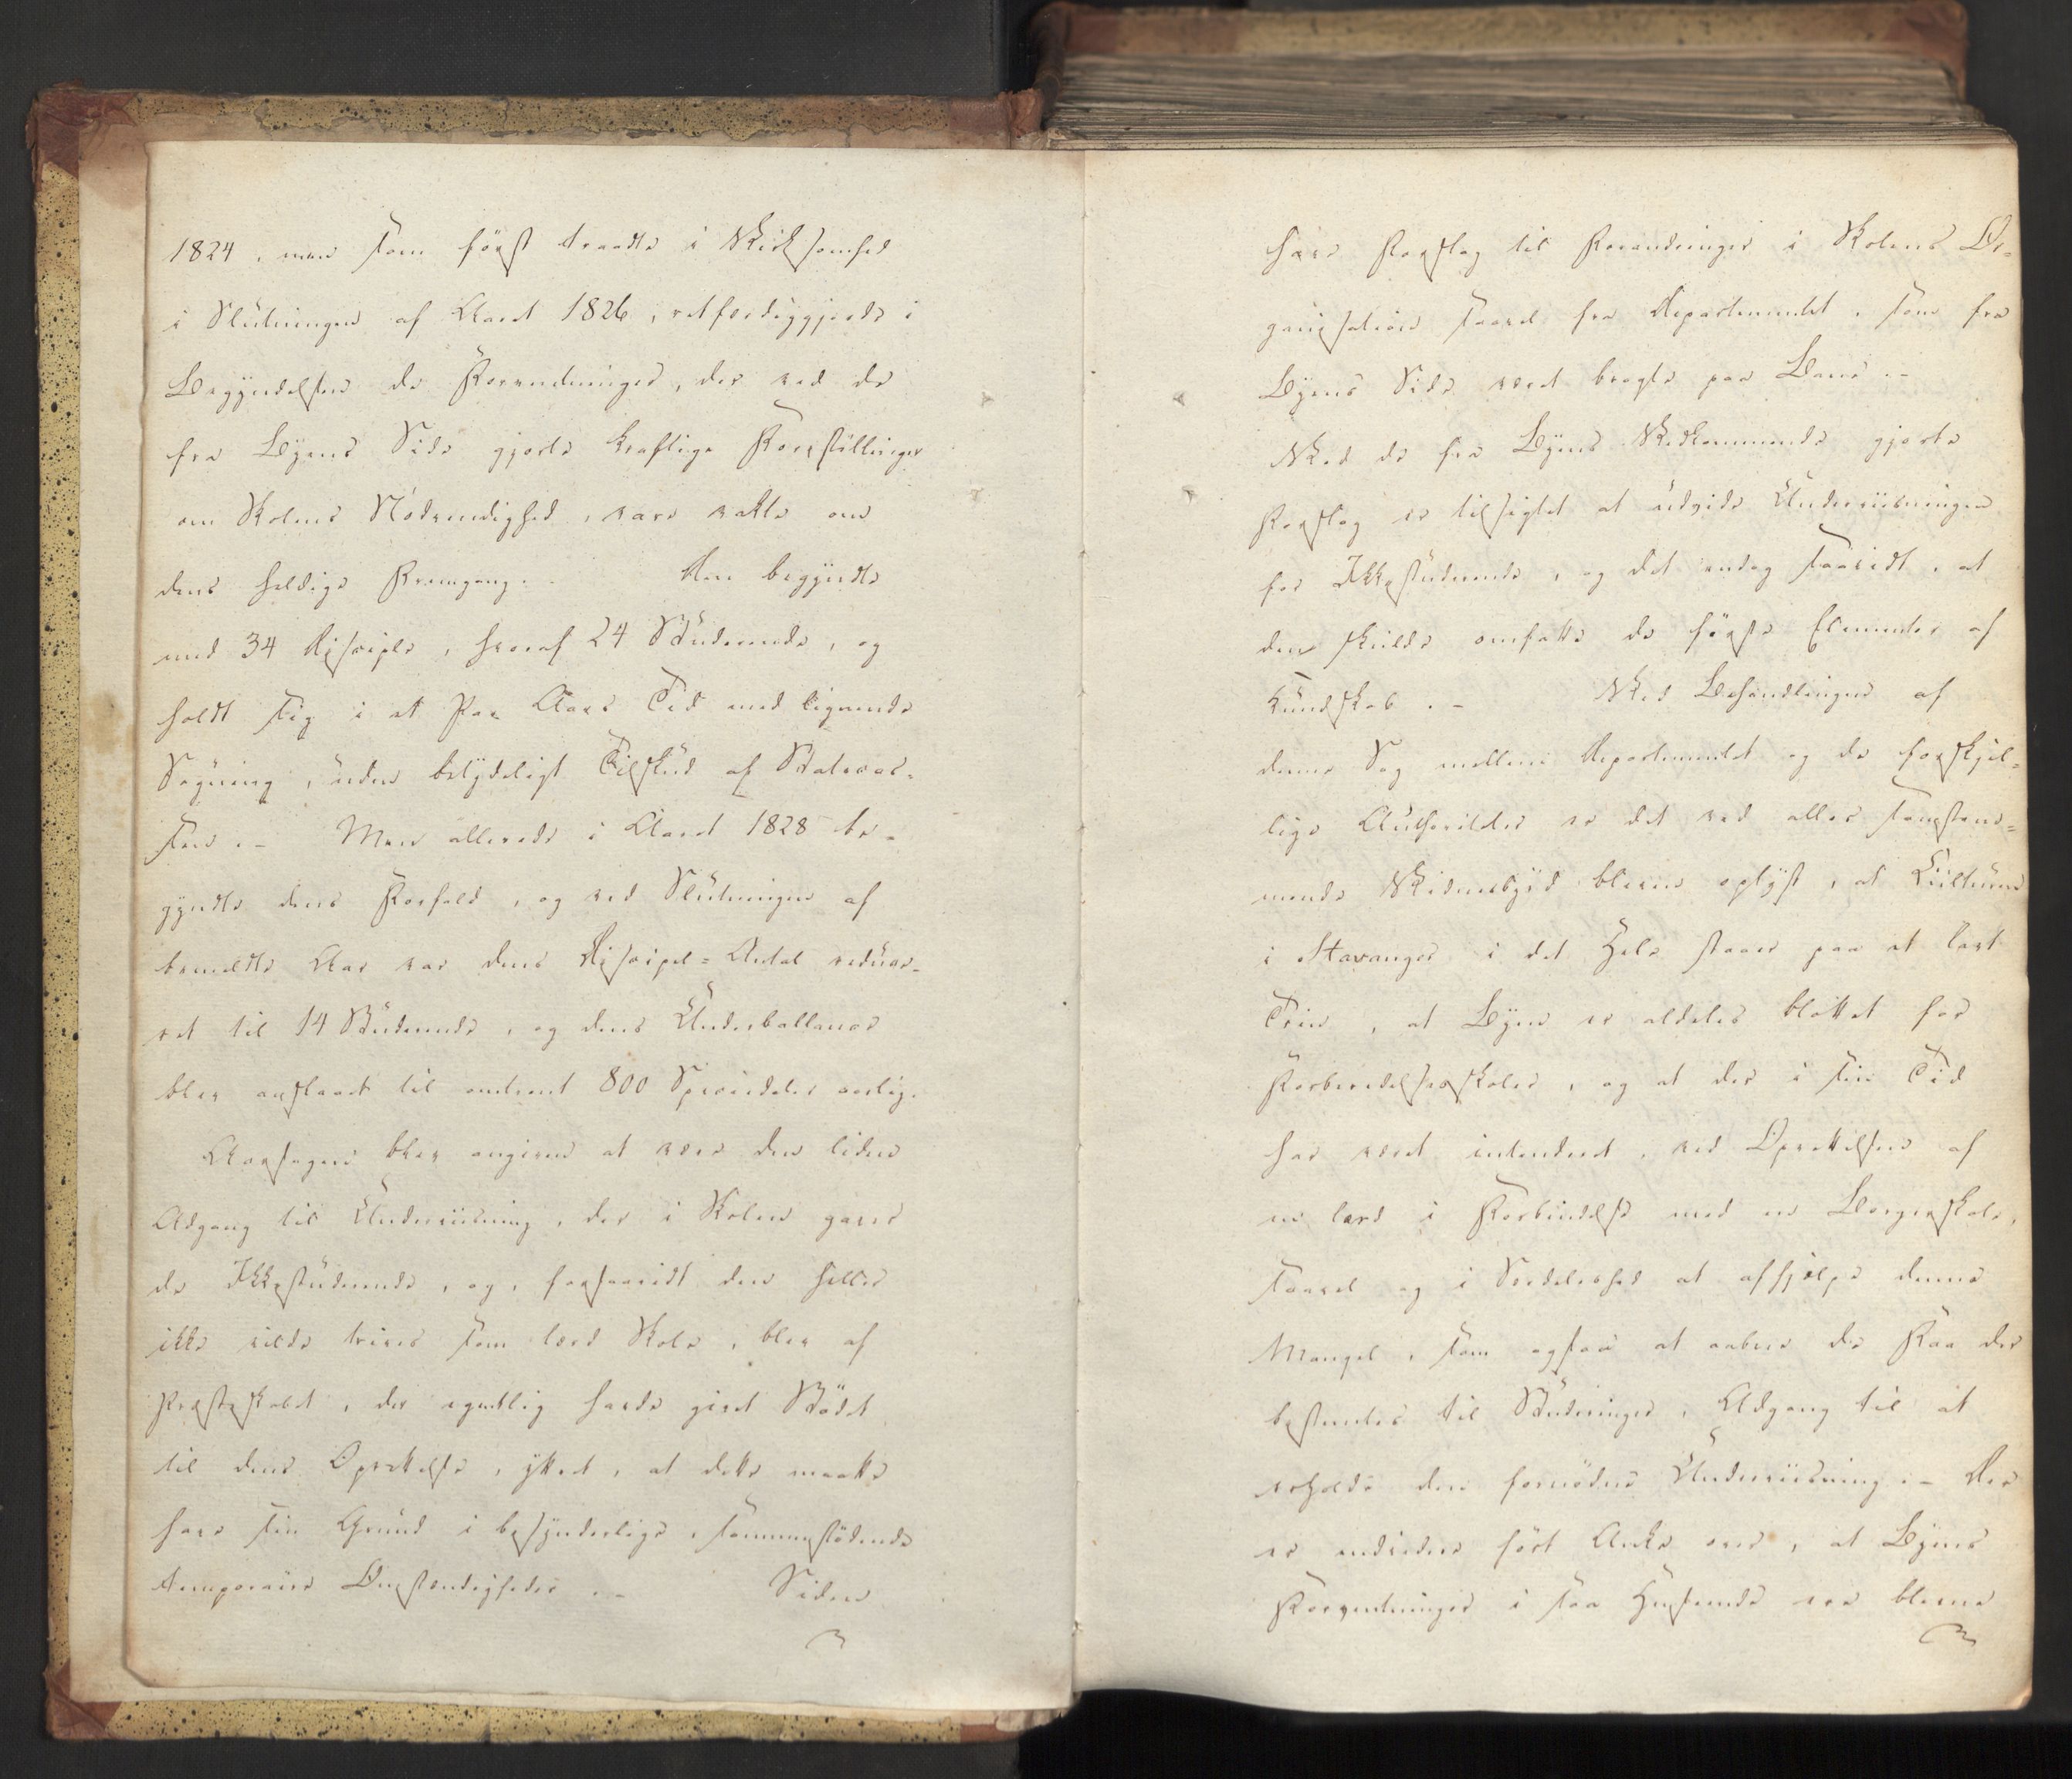 1824, men som först traadte i Virksomhed
i Slutningen af Aaret 1826, retfærdiggjorde i
Begyndelsen de Forventninger, der ved de
fra Byens Side gjorte kraftige Forestillinger
om Skolens Nødvendighed, vare vakte om
dens heldige Fremgang. Den begyndte
med 34 Disciple, hvoraf 24 Studerende, og
holdt sig i et Par Aars Tid med lignende
Søgning, uden betydeligt Tilskud af Statscas-
sen. – Men allerede i Aaret 1828 be-
gyndte dens Forfald, og ved Slutningen af
bemeldte Aar var dens Discipel-Antal reduce-
ret til 14 Studerende, og dens Underballance
blev anslaaet til omtrent 800 Speciedaler aarlig.
Aarsagen blev angiven at være den liden
Adgang til Underviisning, der i Skolen gaves
de Ikkestuderende, og, forsaavidt den heller
ikke vilde trives som lærd Skole, blev af
Præsteskabet, der egentlig havde givet Stødet
til dens Oprettelse, yttret, at dette maatte
have sin Grund i besynderlige, sammenstødende
temporaire Omstændigheder. – Siden
have Forslag til Forandringer i Skolens Or-
ganisation saavel fra Departementet, som fra
Byens Side været bragte paa Bane. –
Ved de fra Byens Vedkommende gjorte
Forslag er tilsigtet at udvide Underviisningen
for Ikkestuderende, og det endog saavidt, at
den skulde omfatte de første Elementer af
Kundskab. – Ved Behandlingen af
denne Sag mellem Departementet og de forskjel-
lige Authoriteter er det ved alles samstem-
mende Vidnesbyrd bleven oplyst, at Culturen
i Stavanger i det Hele staaer paa et lavt
Trin, at Byen er aldeles blottet for
Forberedelsesskoler, og at der i sin Tid
har været intenderet, ved Oprettelsen af
en lærd i Forbindelse med en Borgerskole,
saavel og i Særdeleshed at afhjelpe denne
Mangel, som ogsaa at aabne de Faa der
bestemtes til Studeringer, Adgang til at
erholde den fornødne Underviisning. – Der
er endvidere ført Anke over, at Byens
Forventninger i saa Henseende ere blevne